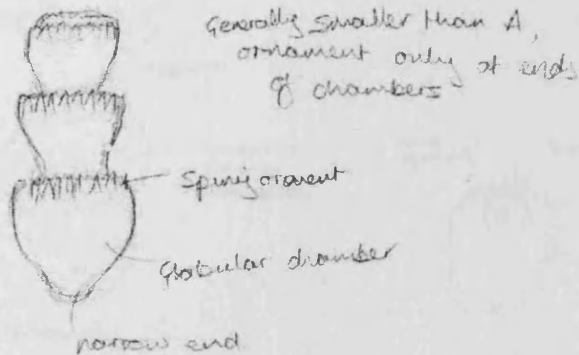 Generally smaller than A,
ornament only at ends
of chambers
Spiny orament
Globular chamber
narrow end